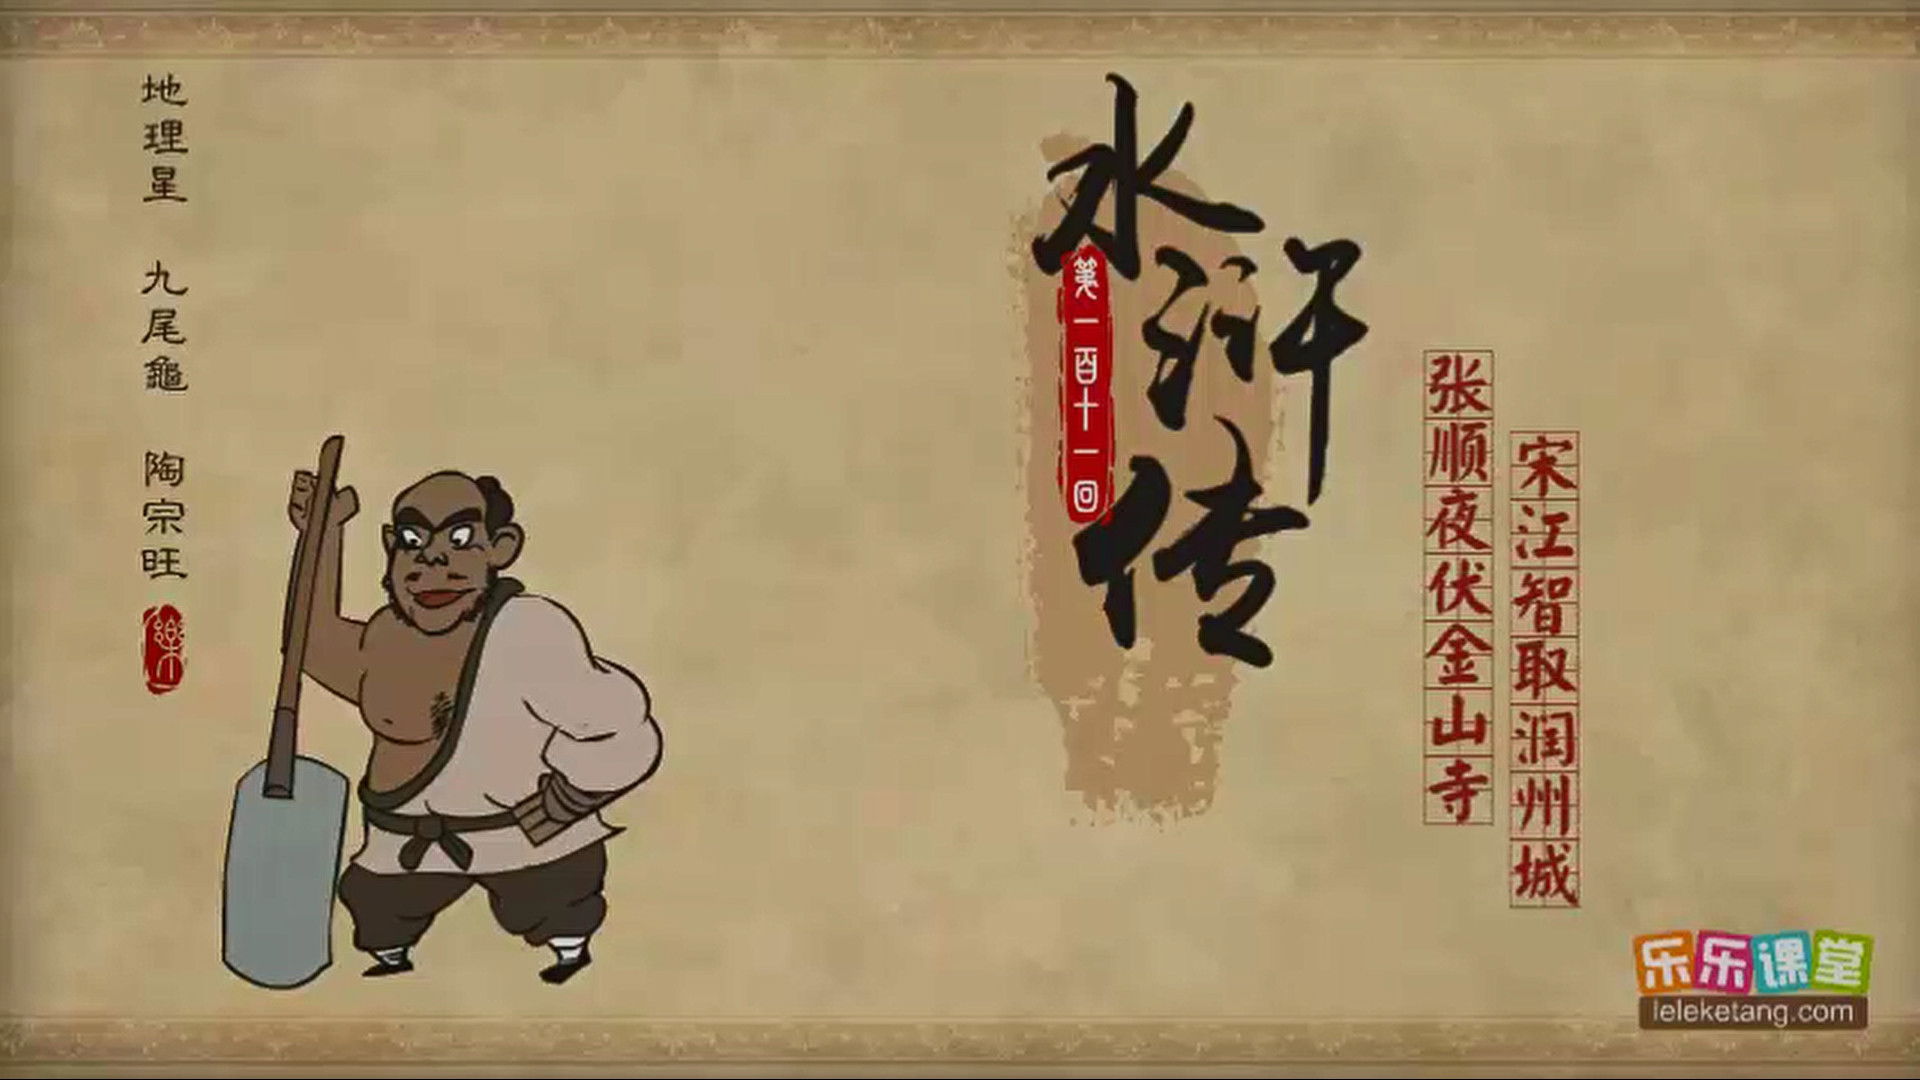 地理星 九尾龜 陶宗旺
樂
水浒传
第一百十一回
张顺夜伏金山寺
宋江智取润州城
乐乐课堂
leleketang.com